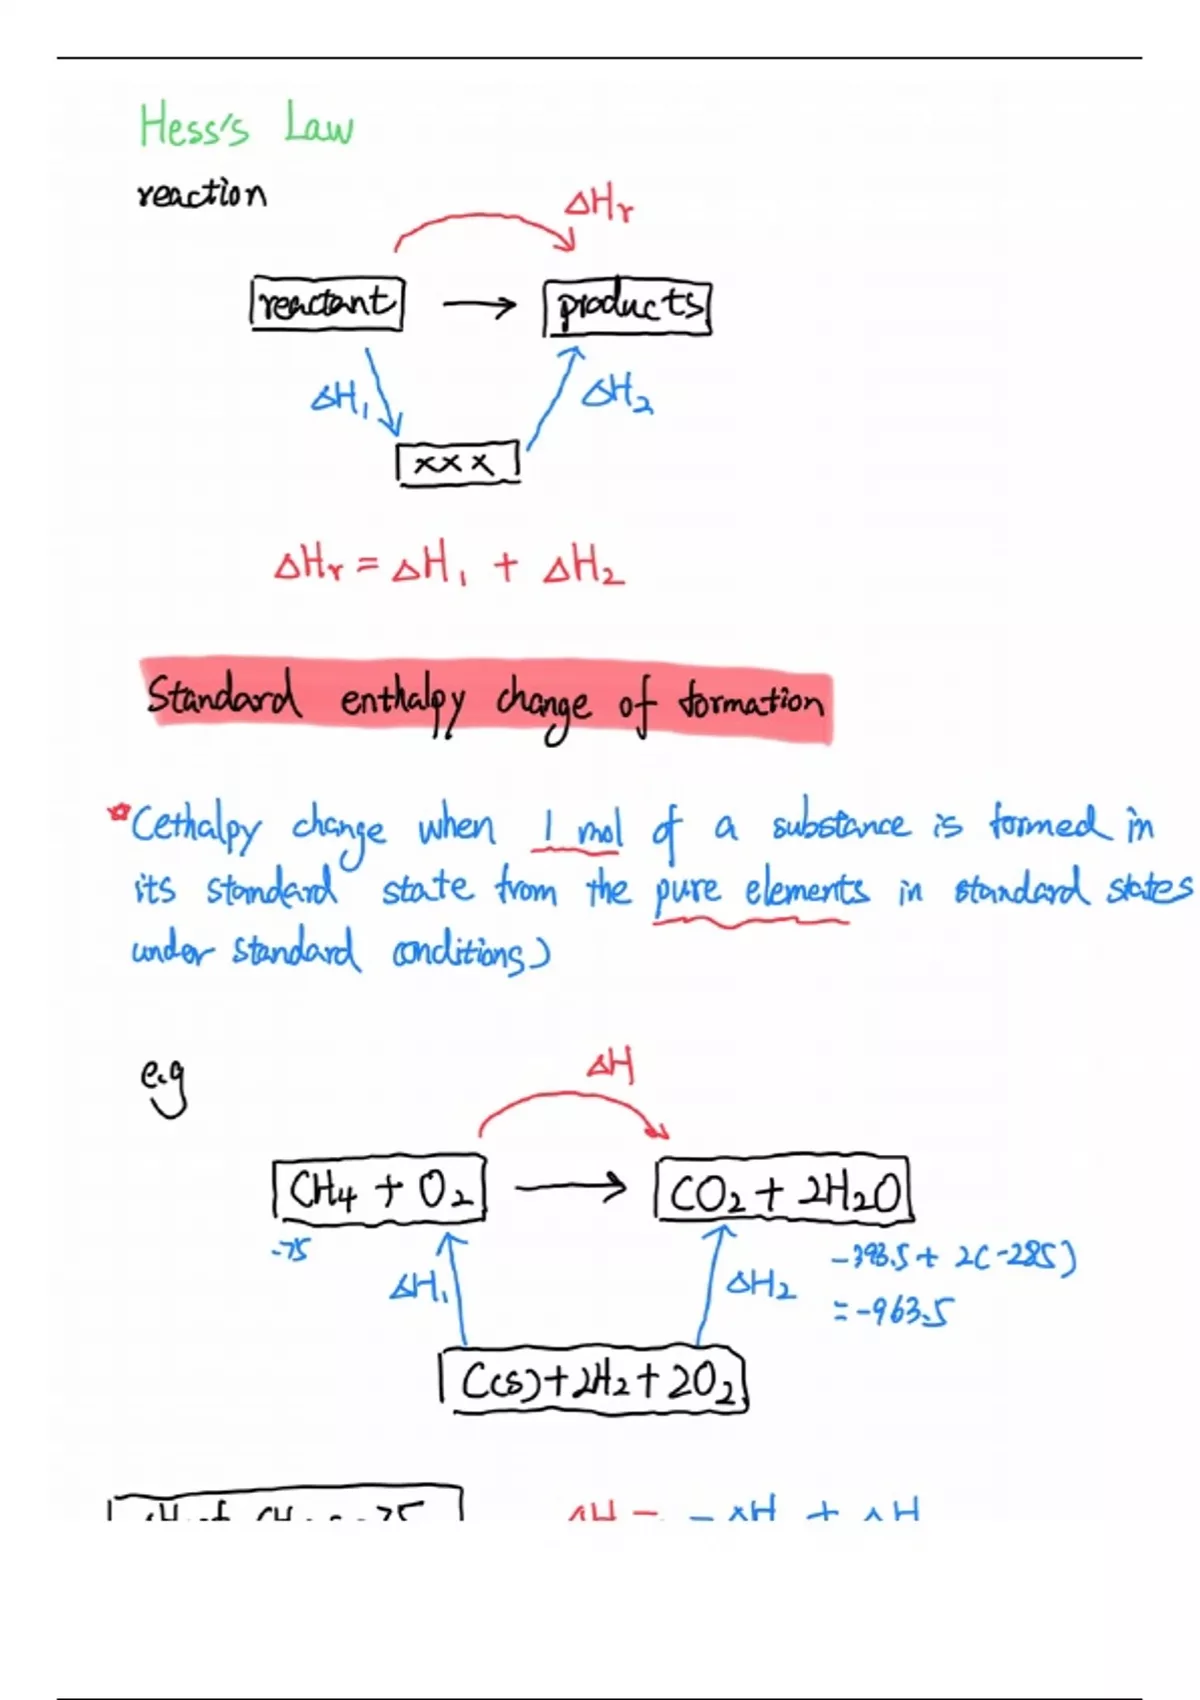 Hess's Law
reaction
ΔHr
reactant → products
ΔH1 ΔH2
xxx
ΔHr = ΔH1 + ΔH2
Standard enthalpy change of formation
*Cethalpy change when 1 mol of a substance is formed in
its standard state from the pure elements in standard states
under standard conditions)
e.g
ΔH
CH4 + O2 → CO2 + 2H2O
-75
-393.5 + 2(-285)
ΔH1 ΔH2
= -963.5
C(s) + 2H2 + 2O2
ΔH = -ΔH + ΔH